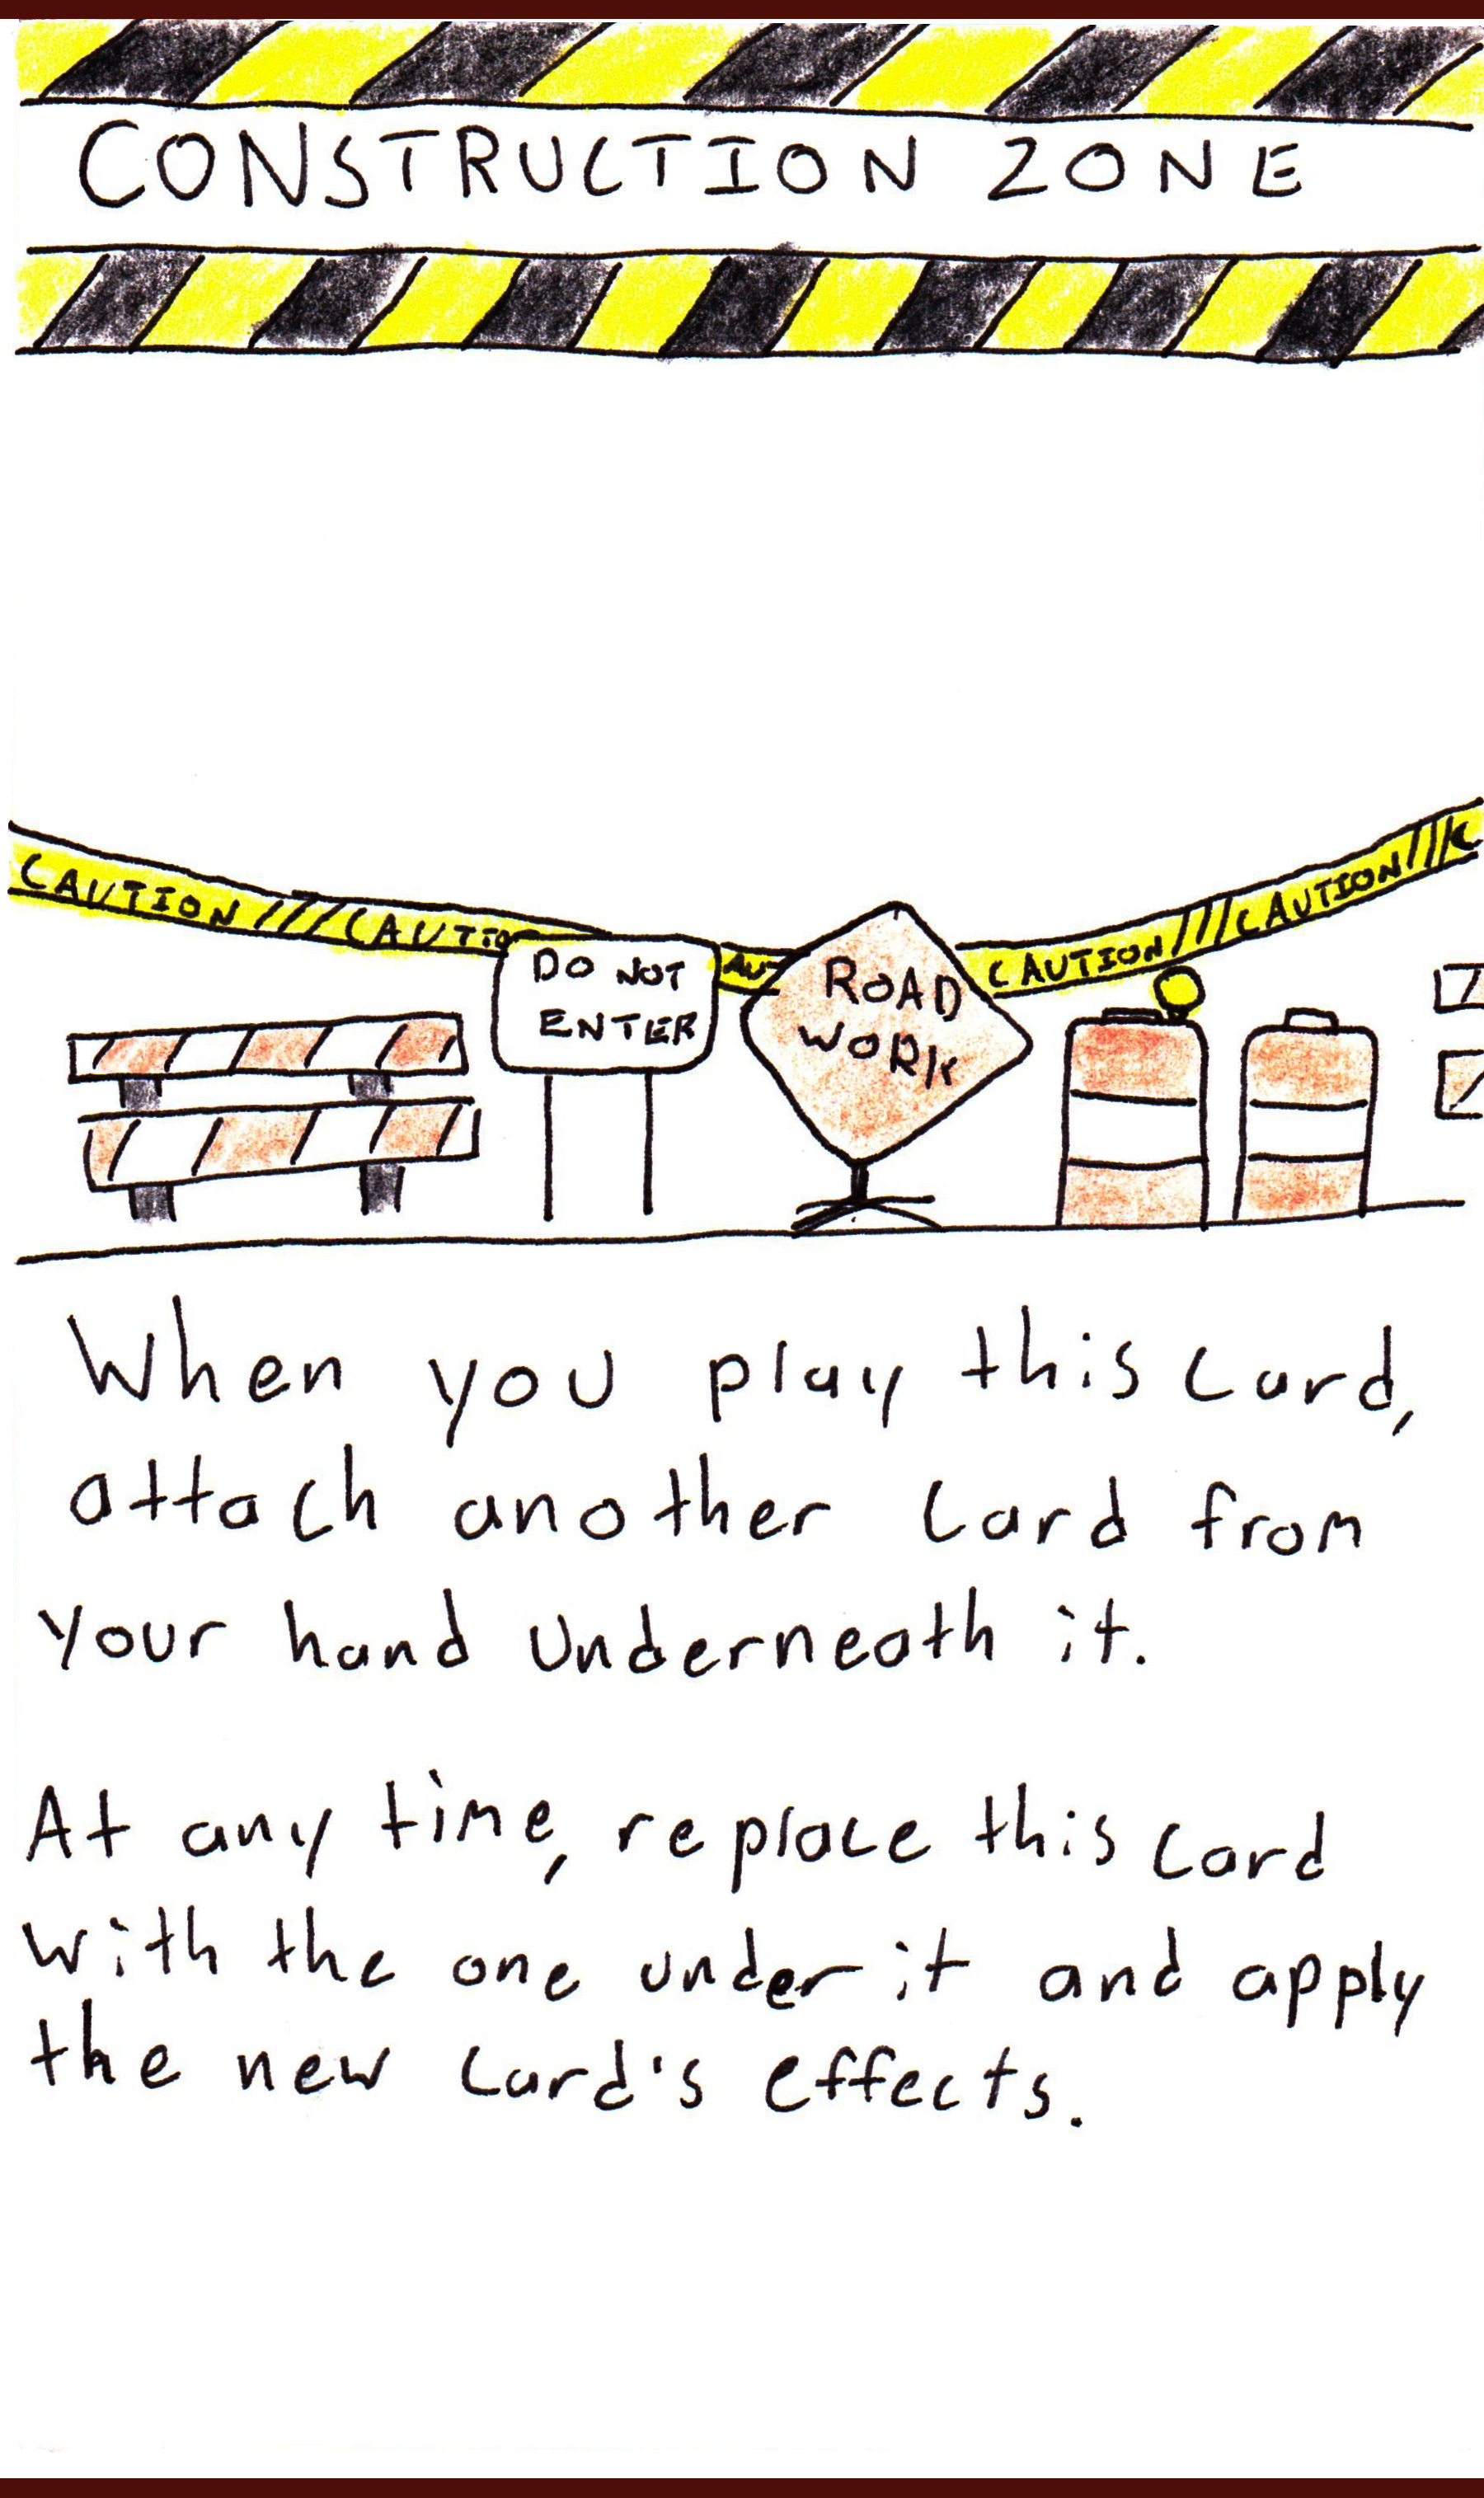 CONSTRUCTION ZONE
CAUTION /// CAUTIO
AU
CAUTION /// CAUTION /// C
DO NOT
ENTER
ROAD
WORK
When you play this card,
attach another card from
your hand underneath it.
At any time, replace this card
with the one under it and apply
the new card's effects.